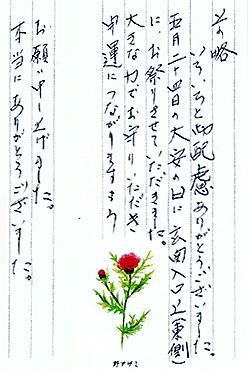 その略
いろいろと御配慮ありがとうございました。
五月二十四日の大安の日に玄関入口上(東側)
に、お祭りさせていただきました。
大きな力でお守りいただき
幸運につながりますよう
お願い申し上げました。
本当にありがとうございました。
野アザミ